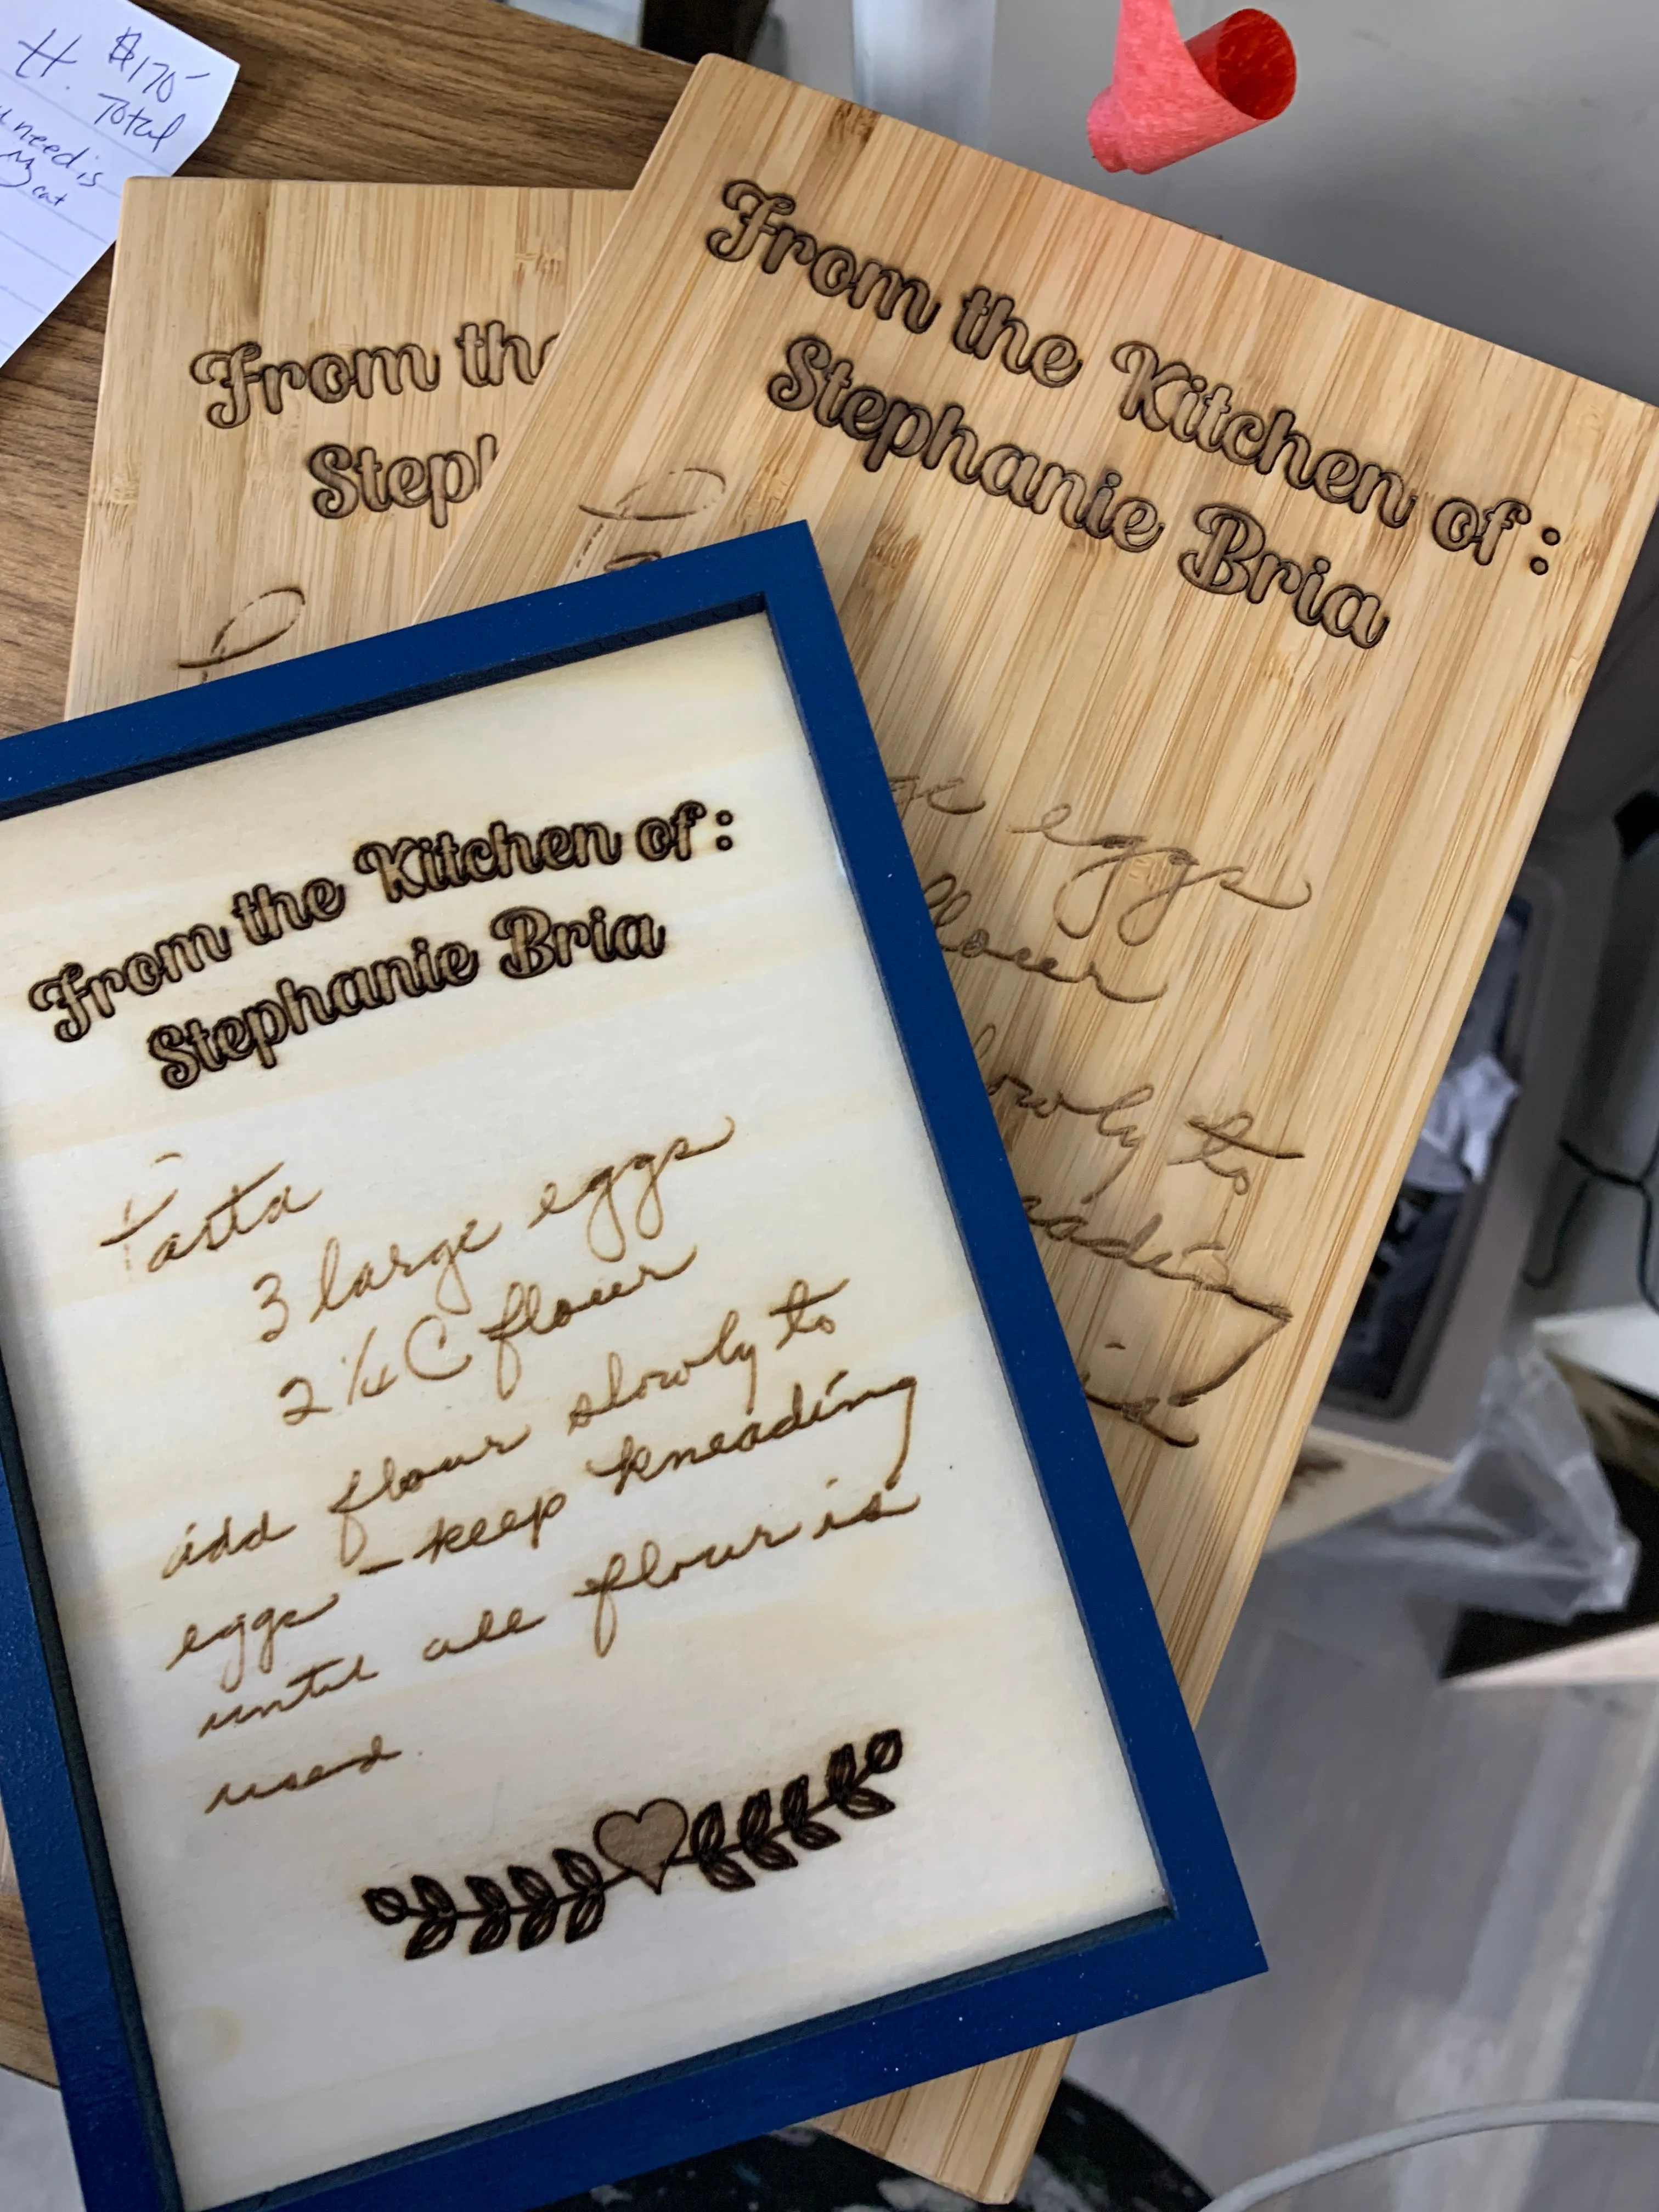 H. $170
Total
need is
My cat
From the
Steph
From the Kitchen of:
Stephanie Bria
eggs
flour
slowly to
kneading
is
From the Kitchen of:
Stephanie Bria
Pasta
3 large eggs
2 1/4 C flour
add flour slowly to
eggs - keep kneading
until all flour is
used